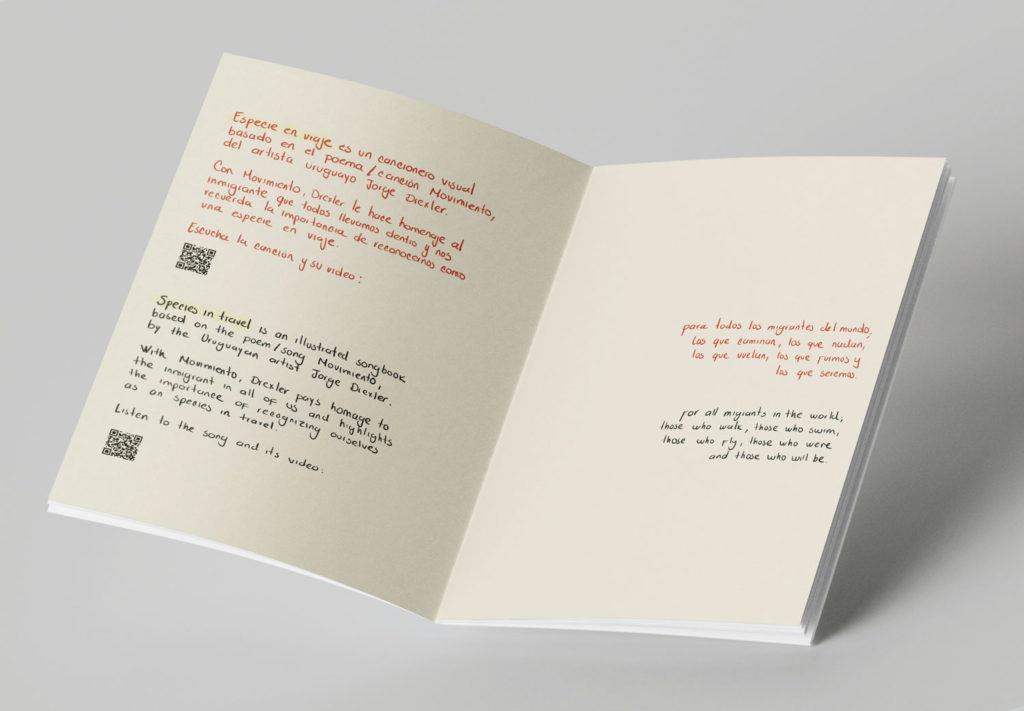 Especie en viaje es un cancionero visual
basado en el poema/canción Movimiento,
del artista uruguayo Jorge Drexler.
Con Movimiento, Drexler le hace homenaje al
inmigrante que todos llevamos dentro y nos
recuerda la importancia de reconocernos como
una especie en viaje.
Escucha la canción y su video:
Species in travel is an illustrated songbook
based on the poem/song Movimiento,
by the Uruguayan artist Jorge Drexler.
With Movimiento, Drexler pays homage to
the inmigrant in all of us and highlights
the importance of recognizing ourselves
as an species in travel.
Listen to the song and its video:
para todos los migrantes del mundo;
los que caminan, los que nadan,
los que vuelan, los que fuimos y
los que seremos.
for all migrants in the world;
those who walk, those who swim,
those who fly, those who were
and those who will be.